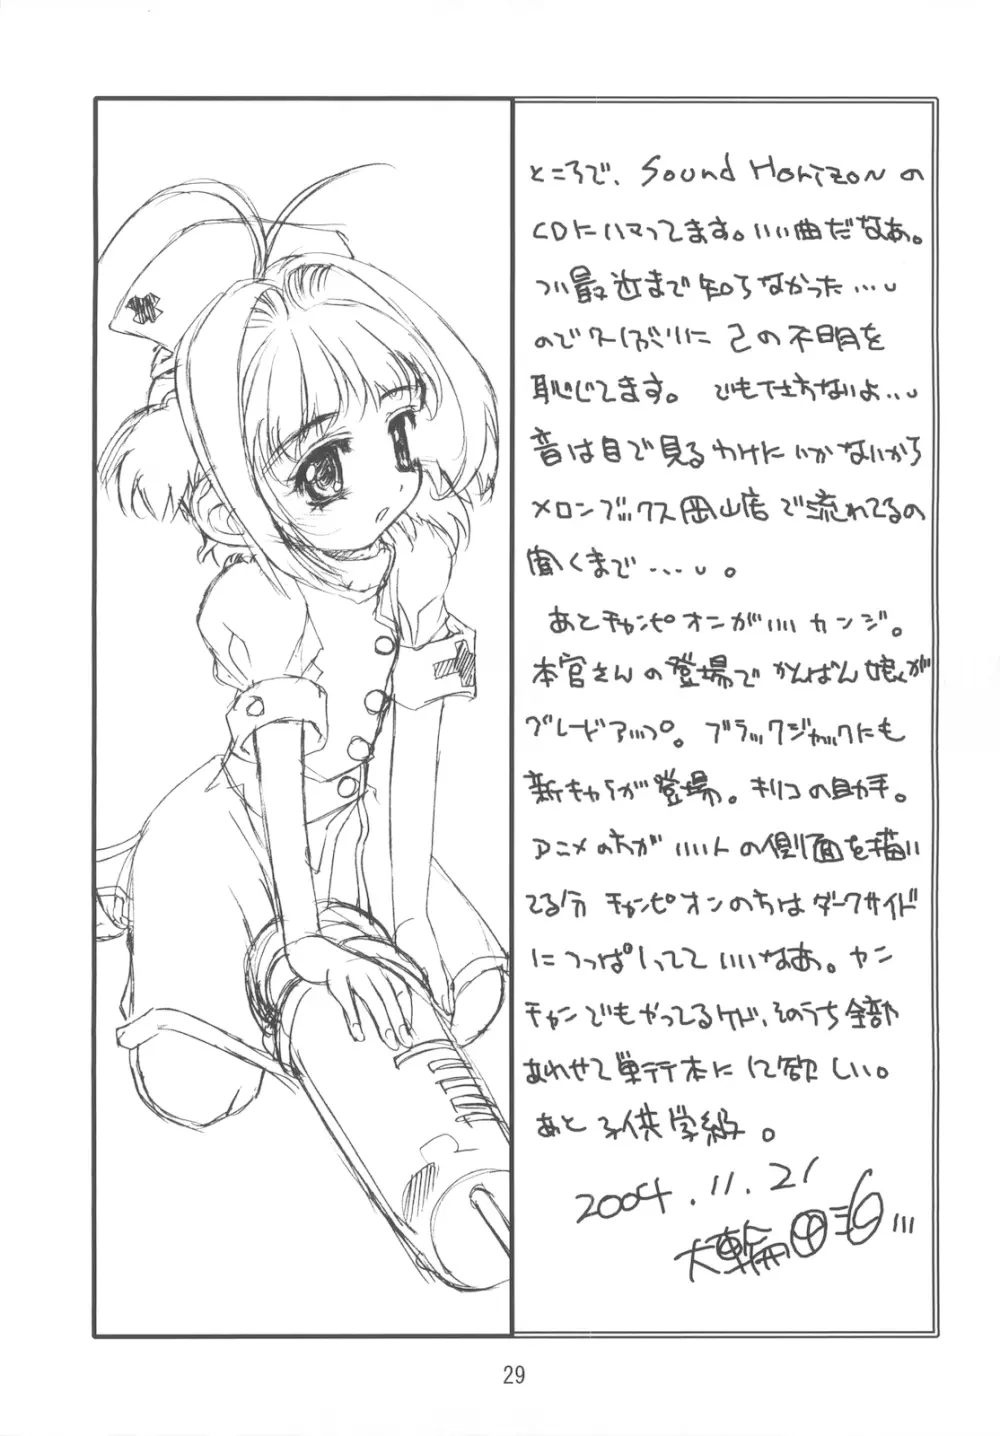 ところで、Sound Horizonの
CDにハマってます。いい曲だなあ。
つい最近まで知らなかった…
ので久しぶりに己の不明を
恥じてます。でも仕方ないよ…
音は目で見るわけにいかないから
メロンブックス岡山店で流れてるの
聞くまで…。
あとチャンピオンがいいカンジ。
本官さんの登場でかんばん娘が
グレードアップ。ブラックジャックにも
新キャラが登場。キリコの助手。
アニメの方がいい人の側面を描い
てる分チャンピオンの方はダークサイド
につっぱしってていいなあ。ヤン
チャンでもやってるケド、そのうち全部
あわせて単行本にして欲しい。
あと子供学級。
2004.11.21
大輪田
29